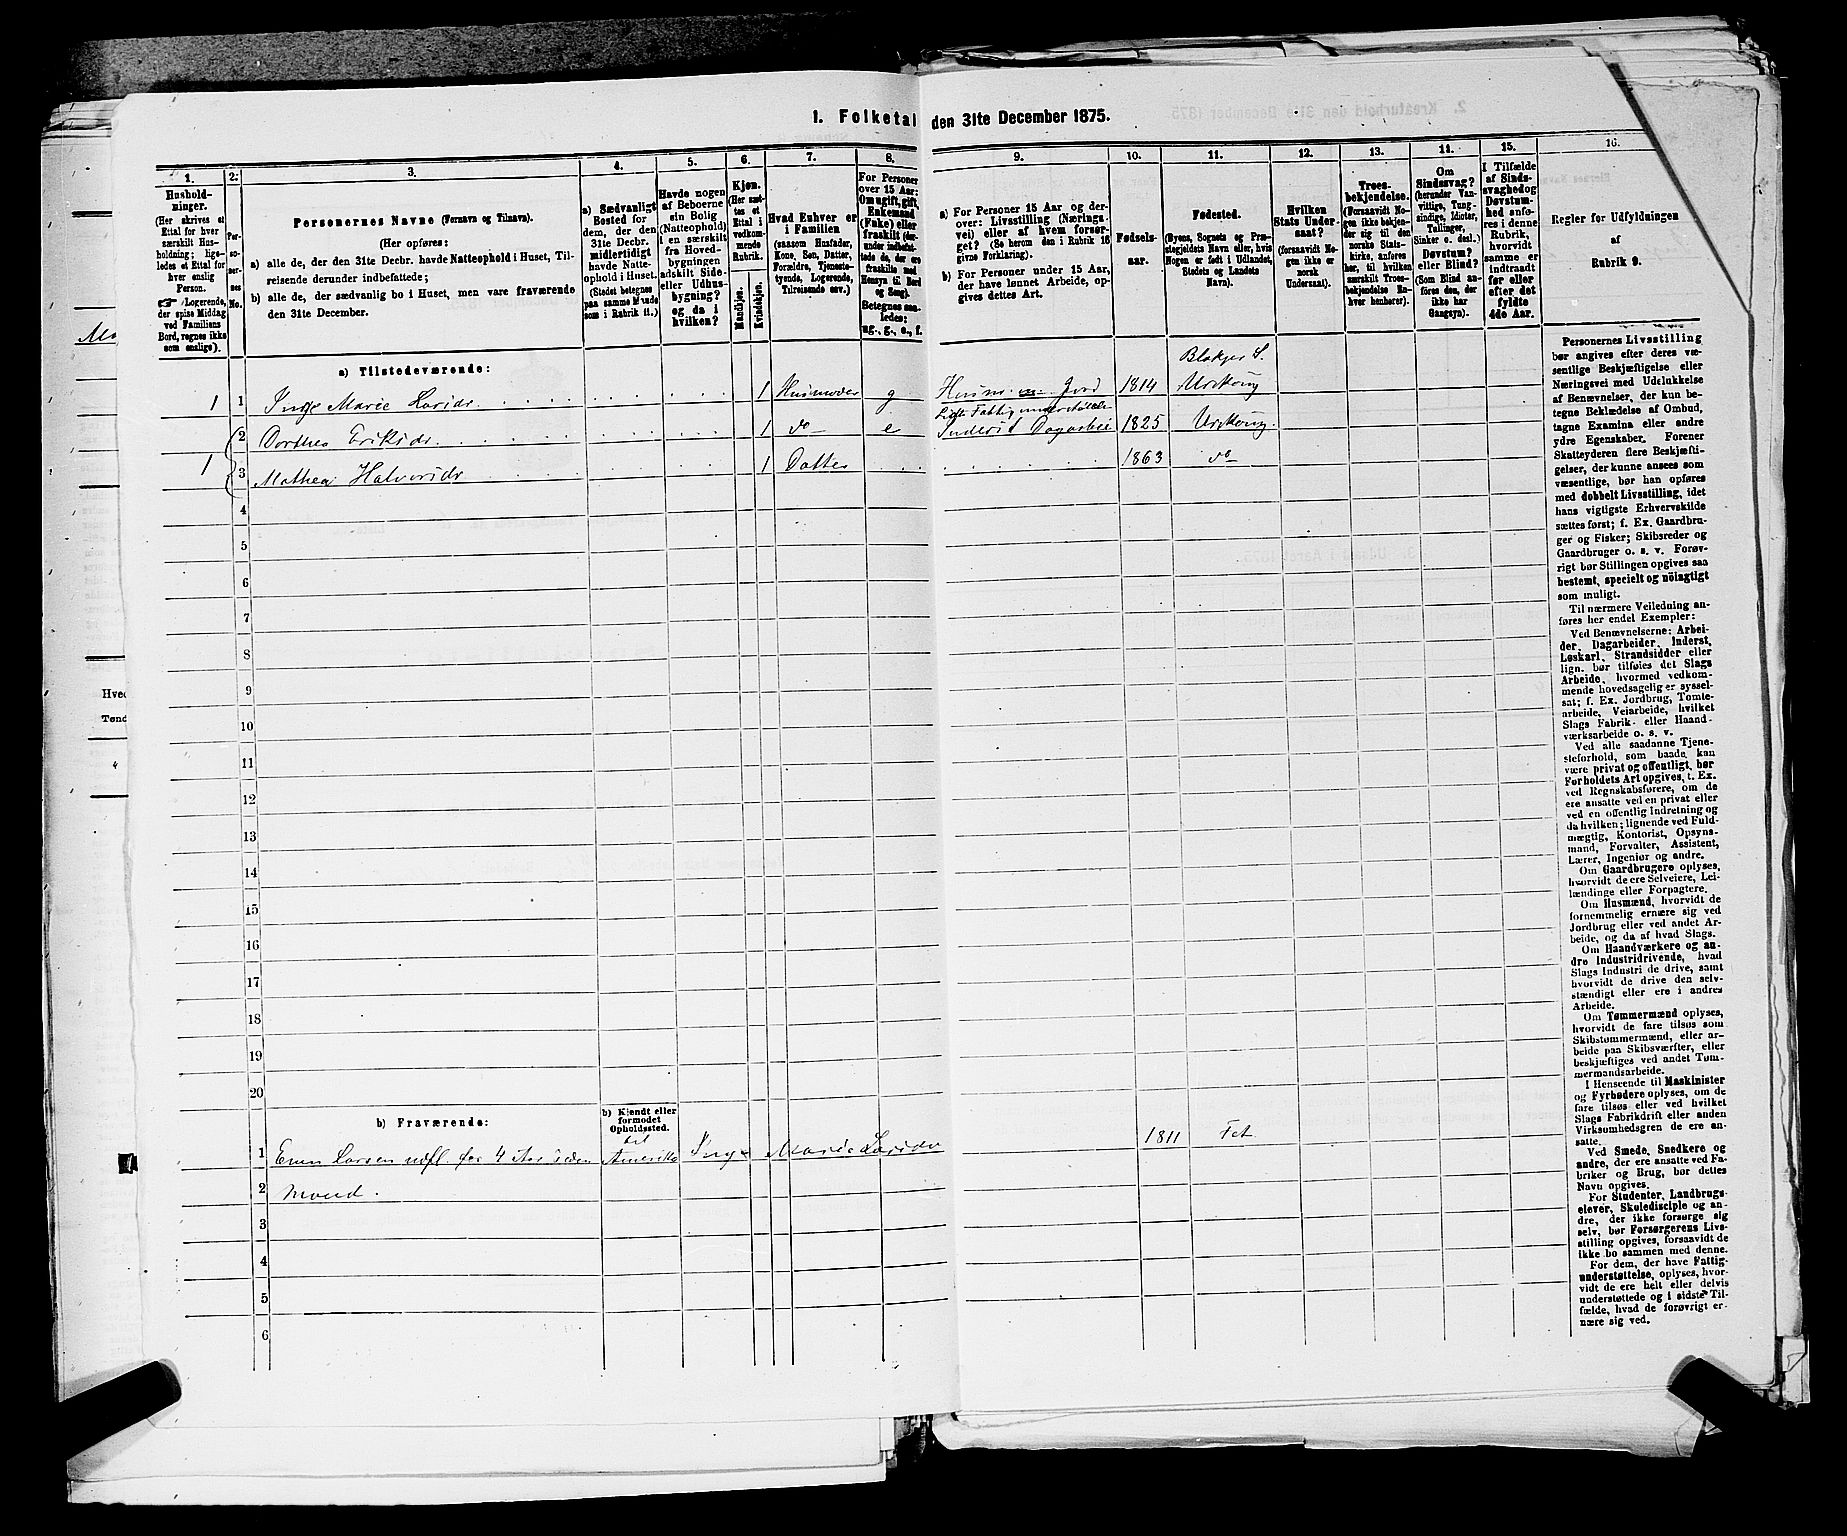 1. Folketal den 31te December 1875.
1.
2.
3.
4.
5.
6.
7.
8.
9.
10.
11.
12.
13.
14.
15.
16.
Hushold-
ninger.
(Her skrives et
Ettal for hver
særskilt Hus-
holdning; lige-
ledes et Ettal for
hver enslig
Person.
☞ Logerende,
der spise Middag
ved Familiens
Bord, regnes ikke
som enslige).
Per-
so-
ner-
nes
No.
Personernes Navne (Fornavn og Tilnavn).
(Her opføres:
a) alle de, der den 31te Decbr. havde Natteophold i Huset, Til-
reisende derunder indbefattede;
b) alle de, der sædvanlig bo i Huset, men vare fraværende
den 31te December.
a) Sædvanligt
Bosted for
dem, der den
31te Decbr.
midlertidigt
havde Natte-
ophold i Huset.
(Stedet betegnes
paa samme Maade
som i Rubrik 11.)
Havde nogen
af Beboerne
ein Bolig
(Natteophold)
i en særskilt
fra Hoved-
bygningen
adskilt Side-
eller Udhus-
bygning?
og da i
hvilken?
Kjøn.
(Her sæt-
tes et
Ettal i
vedkom-
mende
Rubrik.
Mandkjøn.
Kvindekjøn.
Hvad Enhver er
i Familien
(saasom Husfader,
Kone, Søn, Datter,
Forældre, Tjeneste-
tyende, Logerende,
Tilreisende osv.)
For Personer
over 15 Aar:
Om ugift, gift,
Enkemand
(Enke) eller
fraskilt
Betegnes saa-
ledes:
ug., g., e., f.
a) For Personer 15 Aar og der-
over: Livsstilling (Nærings-
vei) eller af hvem forsør-
get? (Se herom den i Rubrik 16
givne Forklaring).
b) For Personer under 15 Aar,
der have lønnet Arbeide, op-
gives dettes Art.
Fødsels-
aar.
Fødested.
(Byens, Sognets og Præ-
stegjeldets Navn eller, hvis
Nogen er født i Udlandet,
Stedets og Landets
Navn).
Hvilken
Stats Under-
saat?
(forsaavidt No-
gen ikke er
norsk
Undersaat).
Troes-
bekjendelse.
(Forsaavidt No-
gen ikke bekjen-
der sig til den
norske Stats-
kirke, anføres
her, til hvilken
særskilt Troes-
bekjendelse En-
hver henhører).
Om
Sindssvag?
(herunder Van-
vittige, Tung-
sindige, Idioter,
Tullinger,
Sinker o. desl.)
Døvstum?
eller Blind?
(Som Blind an-
føres den, der
ikke har
Gangsyn).
I Tilfælde
af Sinds-
svaghed og
Døvstum-
hed anfø-
res i denne
Rubrik,
hvorvidt
samme er
indtraadt
før eller
efter det
fyldte
4de Aar.
Regler for Udfyldningen
af
Rubrik 9.
a) Tilstedeværende:
Blakjer S.
1 1 Inge Marie Larsdr. 1 Husmoder g Husm. Jord 1814 Urskoug
2 Dorthea Eriksdr. 1 do e Inderst Dagarbei 1825 Urskoug.
1 3 Mathea Halvorsdr 1 Datter 1863 do
4
5
6
7
8
9
10
11
12
13
14
15
16
17
18
19
20
b) Fraværende:
b) Kjendt eller
formodet
Opholdssted.
1 Even Larsen udfl. for 4 Aar siden til Amerika Inge Marie Larsdr 1811 Fet
2 Mand.
3
4
5
6
Personernes Livsstilling
bør angives efter deres væ-
sentlige Beskjæftigelse eller
Næringsvei med Udelukkelse
af Benævnelser, der kun be-
tegne Beklædelse af Ombud,
tagne Examina eller andre
ydre Egenskaber. Forener
Skatteyderen flere Beskjæfti-
gelser, der kunne ansees som
væsentlige, bør han opføres
med dobbelt Livsstilling, idet
hans vigtigste Erhvervskilde
sættes først; f. Ex. Gaardbru-
ger og Fisker; Skibsreder og
Gaardbruger o. s. v. Forøv-
rigt bør Stillingen opgives saa
bestemt, specielt og nöiagtigt
som muligt.
Til nærmere Veiledning an-
føres her endel Exempler:
Ved Benævnelserne: Arbei-
der, Dagarbeider, Inderst,
Løskarl, Strandsidder eller
lign. bør tilføies det Slags
Arbeide, hvormed vedkom-
mende hovedsagelig er syssel-
sat; f. Ex. Jordbrug, Tomte-
arbeide, Veiarbeide, hvilket
Slags Fabrik- eller Haand-
værksarbeide o. s. v.
Ved alle saadanne Tjene-
steforhold, som baade kan
være privat og offentligt, bør
Forholdets Art opgives, t. Ex.
ved Regnskabsførere, om de
ere ansatte ved en privat eller
ved en offentlig Indretning og
da hvilken; lignende ved Fuld-
mægtig, Kontorist, Opsyns-
mand, Forvalter, Assistent,
Lærer, Ingeniør og andre.
Om Gaardbrugere oplyses,
hvorvidt de ere Selveiere, Lei-
lændinge eller Forpagtere.
Om Husmænd, hvorvidt de
fornemmelig ernære sig ved
Jordbrug eller ved andet Ar-
beide, og da af hvad Slags.
Om Haandværkere og an-
dre Industridrivende, hvad
Slags Industri de drive, samt
hvorvidt de drive den selv-
stændigt eller ere i andres
Arbeide.
Om Tømmermænd oplyses,
hvorvidt de fare tilsøs som
Skibstømmermænd, eller ar-
beide paa Skibsværfter, eller
beskjæftiges ved andet Tøm-
mermandsarbeide.
I Henseende til Maskinister
og Fyrbødere oplyses, om de
fare tilsøs eller ved hvilket
Slags Fabrikdrift eller anden
Virksomhedsgren de ere an-
satte.
Ved Smede, Snedkere og
andre, der ere ansatte ved Fa-
briker og Brug, bør dettes
Navn opgives.
For Studenter, Landbrugs-
elever, Skoledisciple og an-
dre, der ikke forsørge sig
selv, bør Forsørgerens Livs-
stilling opgives, forsaavidt de
ikke bo sammen med denne.
For dem, der have Fattig-
understøttelse, oplyses, hvor-
vidt de ere helt eller delvis
understøttede og i sidste Til-
fælde, hvad de forøvrigt er-
nære sig ved.